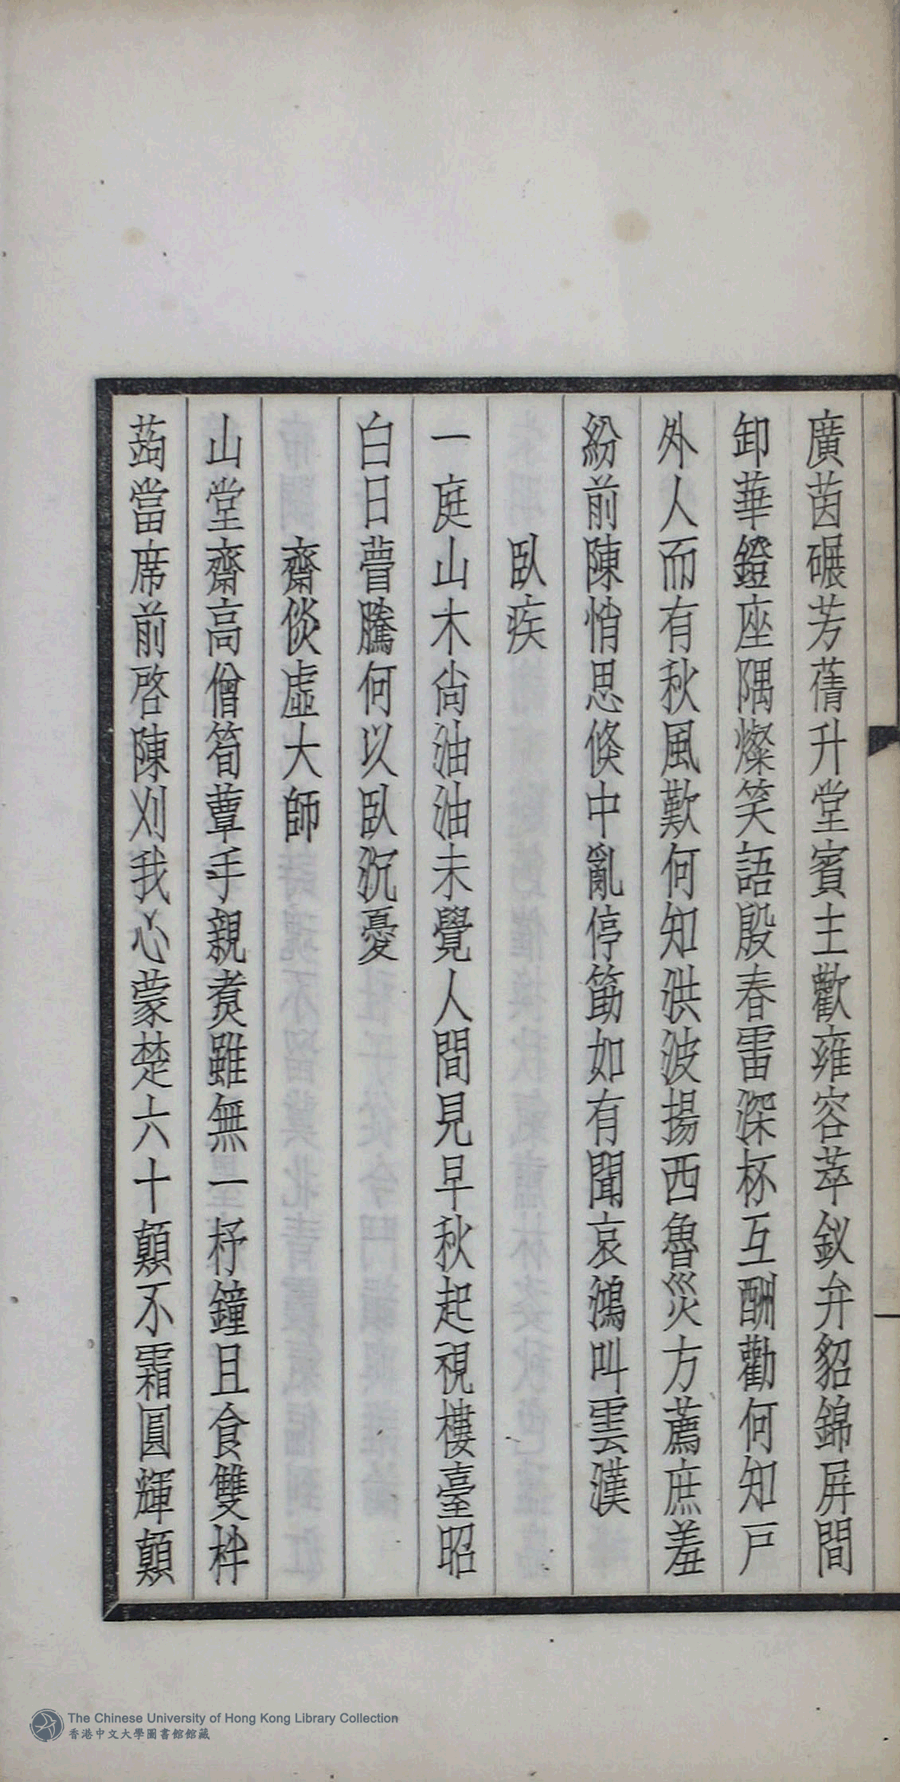 廣茵碾芳蒨升堂賓主歡雍容萃釵弁貂錦屏間
卸華鐙座隅燦笑語殷春雷深杯互酬勸何知戸
外人而有秋風歎何知洪波揚西魯災方薦庶羞
紛前陳悄思倏中亂停筯如有聞哀鴻叫雲漢
臥疾
一庭山木尙油油未覺人間見早秋起視樓臺昭
白日瞢騰何以臥沉憂
齋倓虛大師
山堂齋高僧筍蕈手親煑雖無一杼鐘且食雙柈
蒟當席前啓陳刈我心蒙楚六十顚不霜圓輝顚
The Chinese University of Hong Kong Library Collection
香港中文大學圖書館館藏